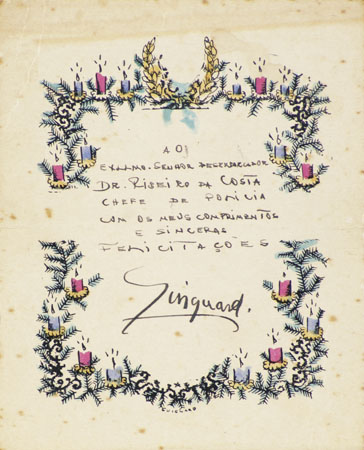 AO
EXMMO. SENHOR DESEMBARGADOR
DR. RIBEIRO DA COSTA
CHEFE DE POLICIA
COM OS MEUS COMPRIMENTOS
E SINCERAS
FELICITAÇOES
Guignard.
GUIGNARD